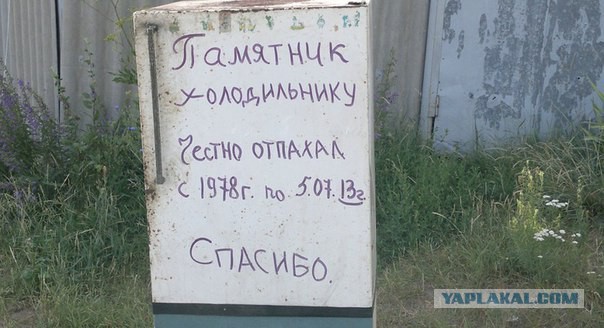 Памятник
холодильнику
Честно отпахал
с 1978г. по 5.07.13г.
Спасибо.
YAPLAKAL.COM